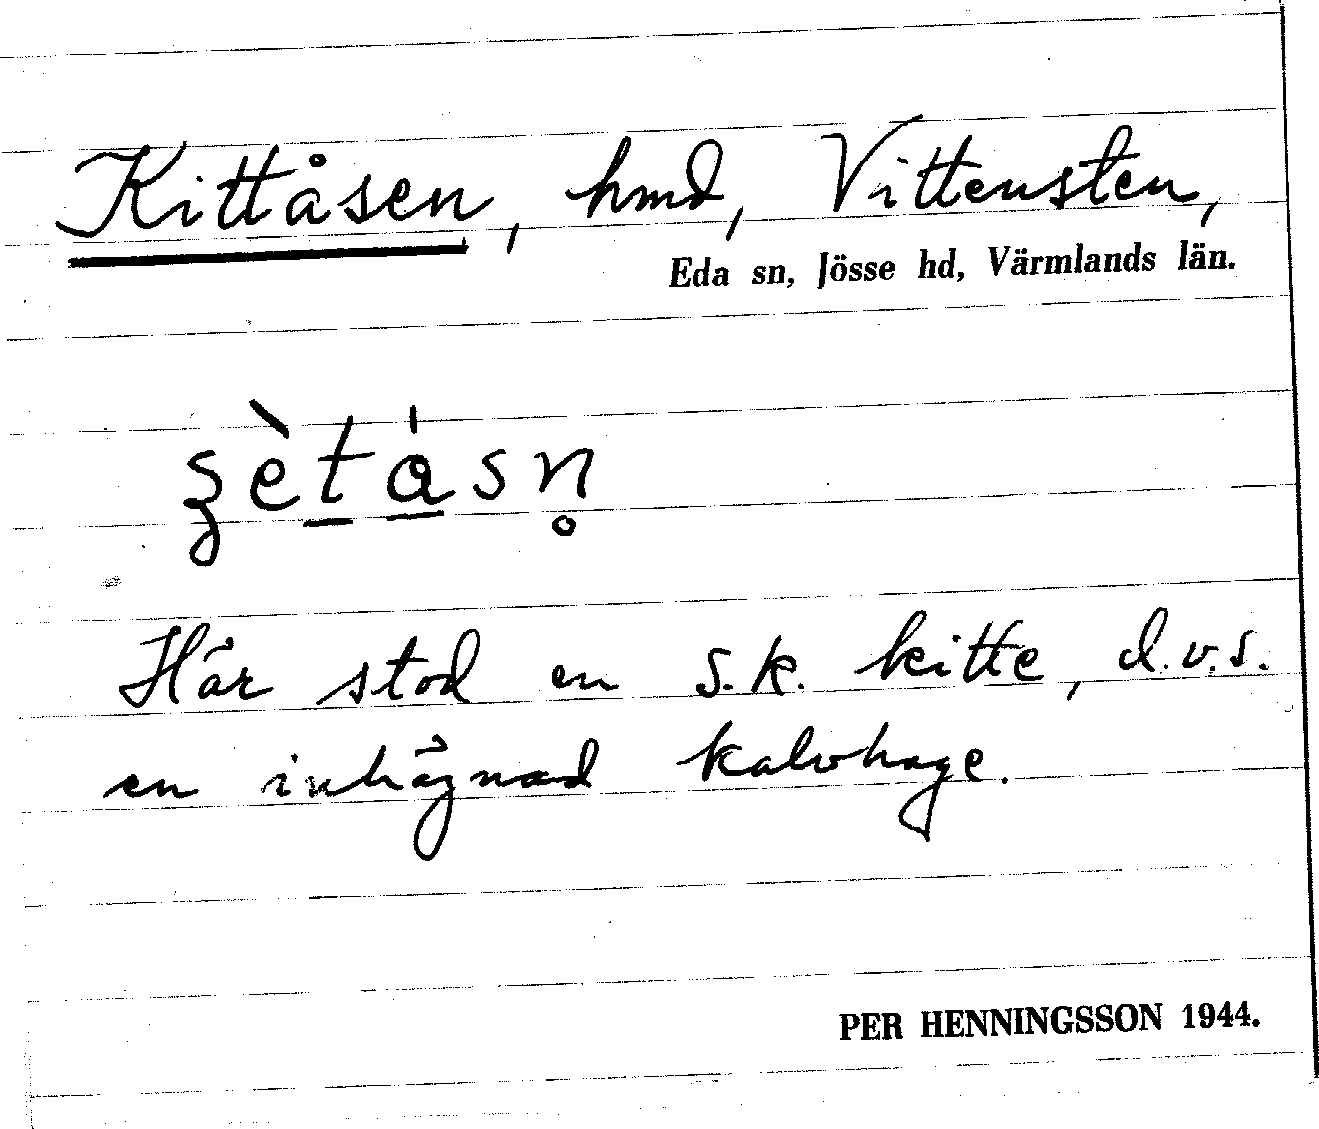 Kittåsen, hmd, Vittensten,
Eda sn, Jösse hd, Värmlands län.
ʂètásn̥
Här stod en s.k. kitte, d.v.s.
en inhägnad kalvhage.
PER HENNINGSSON 1944.